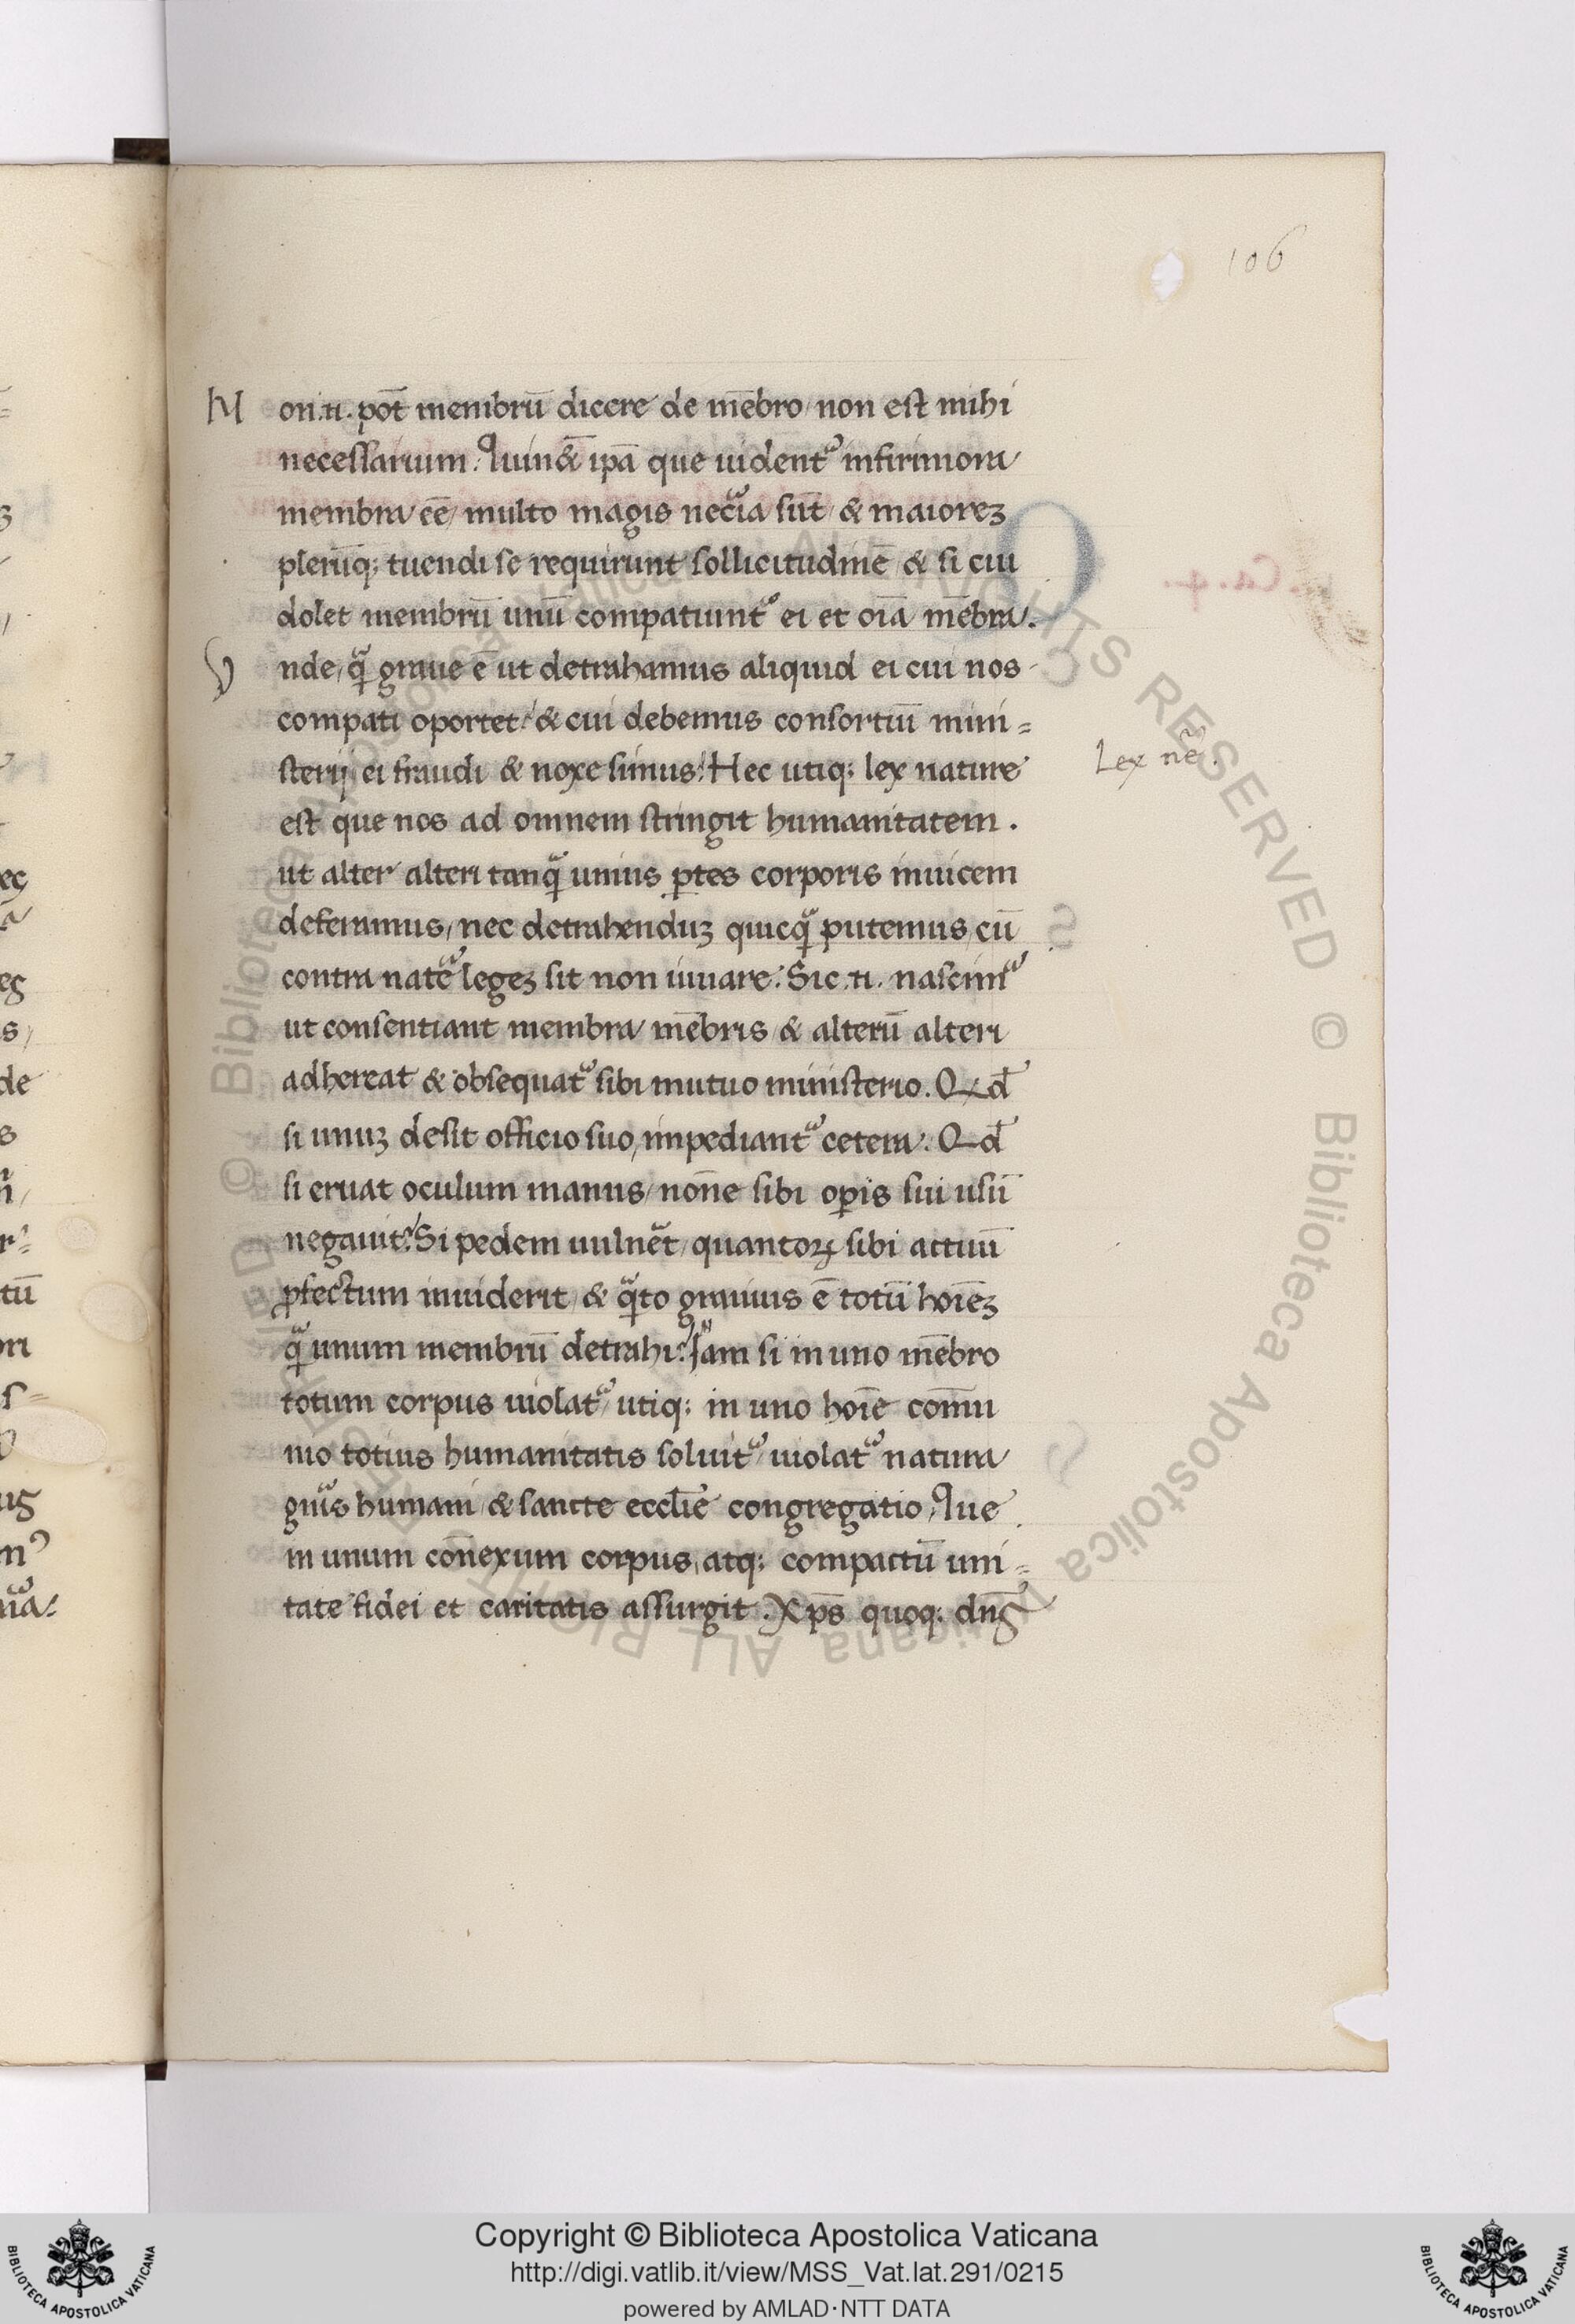 106
Non .n. pōt membrū dicere de mēbro non est mihi
necessarium. Quin & ipā que uident᷑ infirmiora
membra eē multo magis neccͣia sūt & maiorez
plerūq; tuendi se requirunt sollicitudinē & si cui
dolet membrū unū compatiunt᷑ ei et oīa mēbra.
Vnde, qͣ̃ graue ē ut detrahamus aliquid ei cui nos
compati oportet & cui debemus consortiū mini=
sterij ei fraudi & noxe simus? Hec utiq; lex nature
Lex nē.
est que nos ad omnem stringit humanitatem.
ut alter alteri tanqͣ̃ unius ꝑtes corporis inuicem
deferamus, nec detrahenduz quicqͣ̃ putemus, cū
contra natͤ᷑ legez sit non iuuare. Sic .n. nascim᷑
ut consentiant membra mēbris & alterū alteri
adhereat & obsequat᷑ sibi mutuo ministerio. Qd̄
si unuz desit officio suo, impediant᷑ cetera. Qd̄
si eruat oculum manus, nōne sibi oꝑis sui usū
negauit? Si pedem uulnēt, quantoꝝ sibi actuū
ꝓfectum inuiderit, & qͣ̃to grauius ē totū hoīez
qͣ̃ unum membrū detrahi? Iam si in uno mēbro
totum corpus uiolat᷑, utiq; in uno hoīe comū
nio totius humanitatis soluit᷑, uiolat᷑ natura
gn̄is humani & sancte eccl̄ie congregatio, Que
in unum cōnexum corpus, atq; compactū uni=
tate fidei et caritatis assurgit. Xp̄s quoq; dn̄s
Copyright © Biblioteca Apostolica Vaticana
http://digi.vatlib.it/view/MSS_Vat.lat.291/0215
powered by AMLAD·NTT DATA